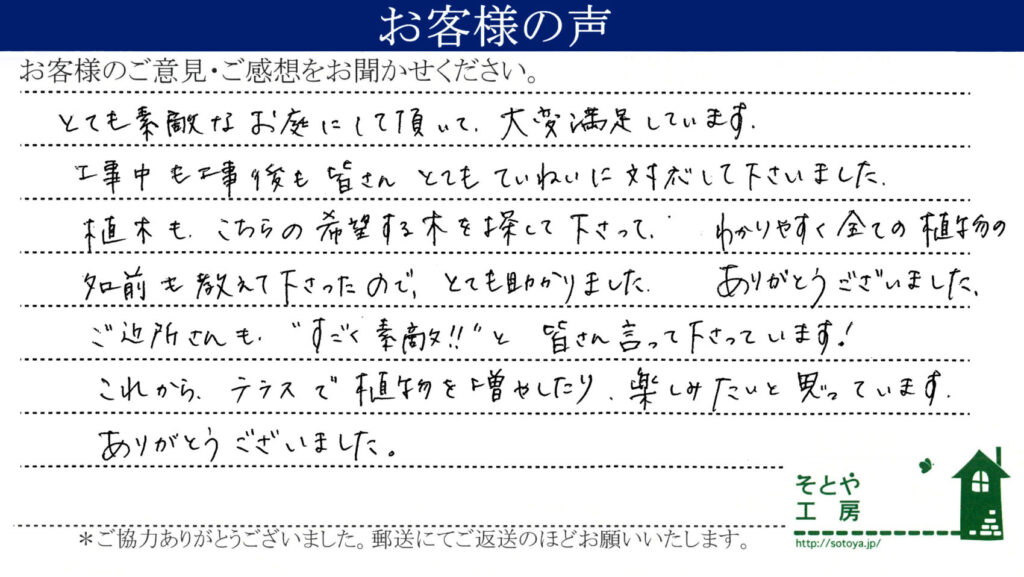 お客様の声
お客様のご意見・ご感想をお聞かせください。
とても素敵なお庭にして頂いて、大変満足しています。
工事中も工事後も皆さんとてもていねいに対応して下さいました。
植木も、こちらの希望する木を探して下さって、わかりやすく全ての植物の
名前も教えて下さったので、とても助かりました。ありがとうございました。
ご近所さんも、"すごく素敵!!"と皆さん言って下さっています!
これから、テラスで植物を増やしたり、楽しみたいと思っています。
ありがとうございました。
そとや
工房
http://sotoya.jp/
＊ご協力ありがとうございました。郵送にてご返送のほどお願いいたします。